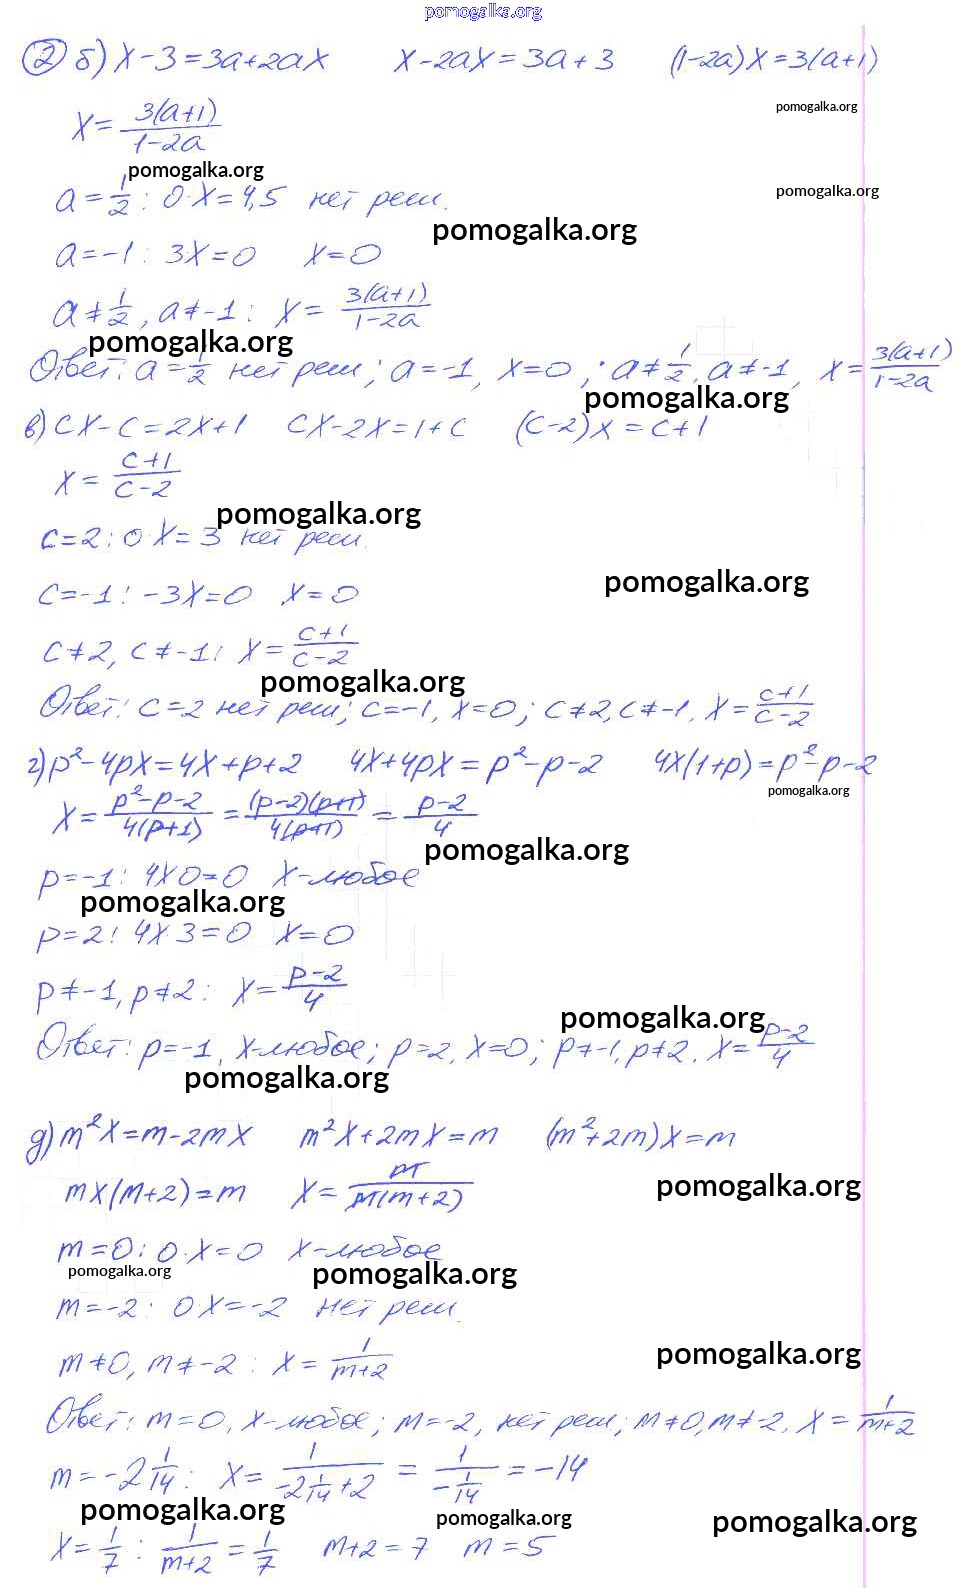 pomogalka.org
② б) x - 3 = 3a + 2ax   x - 2ax = 3a + 3   (1-2a)x = 3(a+1)
pomogalka.org
x = 3(a+1)/(1-2a)
pomogalka.org
pomogalka.org
a = 1/2 : 0·x = 4,5 нет реш.
pomogalka.org
a = -1 : 3x = 0   x = 0
a ≠ 1/2, a ≠ -1 : x = 3(a+1)/(1-2a)
pomogalka.org
Ответ: a = 1/2 нет реш; a = -1, x = 0; a ≠ 1/2, a ≠ -1, x = 3(a+1)/(1-2a)
pomogalka.org
в) cx - c = 2x + 1   cx - 2x = 1 + c   (c-2)x = c+1
x = (c+1)/(c-2)
pomogalka.org
c = 2 : 0·x = 3 нет реш.
pomogalka.org
c = -1 : -3x = 0   x = 0
c ≠ 2, c ≠ -1 : x = (c+1)/(c-2)
pomogalka.org
Ответ: c = 2 нет реш; c = -1, x = 0; c ≠ 2, c ≠ -1, x = (c+1)/(c-2)
г) p² - 4px = 4x + p + 2   4x + 4px = p² - p - 2   4x(1+p) = p² - p - 2
pomogalka.org
x = (p²-p-2)/(4(p+1)) = (p-2)(p+1)/(4(p+1)) = (p-2)/4
pomogalka.org
p = -1 : 4x0 = 0   x - любое
pomogalka.org
p = 2 : 4x·3 = 0   x = 0
p ≠ -1, p ≠ 2 : x = (p-2)/4
pomogalka.org
Ответ: p = -1, x - любое; p = 2, x = 0; p ≠ -1, p ≠ 2, x = (p-2)/4
pomogalka.org
д) m²x = m - 2mx   m²x + 2mx = m   (m²+2m)x = m
pomogalka.org
mx(m+2) = m   x = m/(m(m+2))
m = 0 : 0·x = 0   x - любое
pomogalka.org
pomogalka.org
m = -2 : 0·x = -2 нет реш.
pomogalka.org
m ≠ 0, m ≠ -2 : x = 1/(m+2)
Ответ: m = 0, x - любое; m = -2, нет реш; m ≠ 0, m ≠ -2, x = 1/(m+2)
m = -2 1/14 : x = 1/(-2 1/14 + 2) = 1/(-1/14) = -14
pomogalka.org
pomogalka.org
pomogalka.org
x = 1/7 : 1/(m+2) = 1/7   m+2 = 7   m = 5